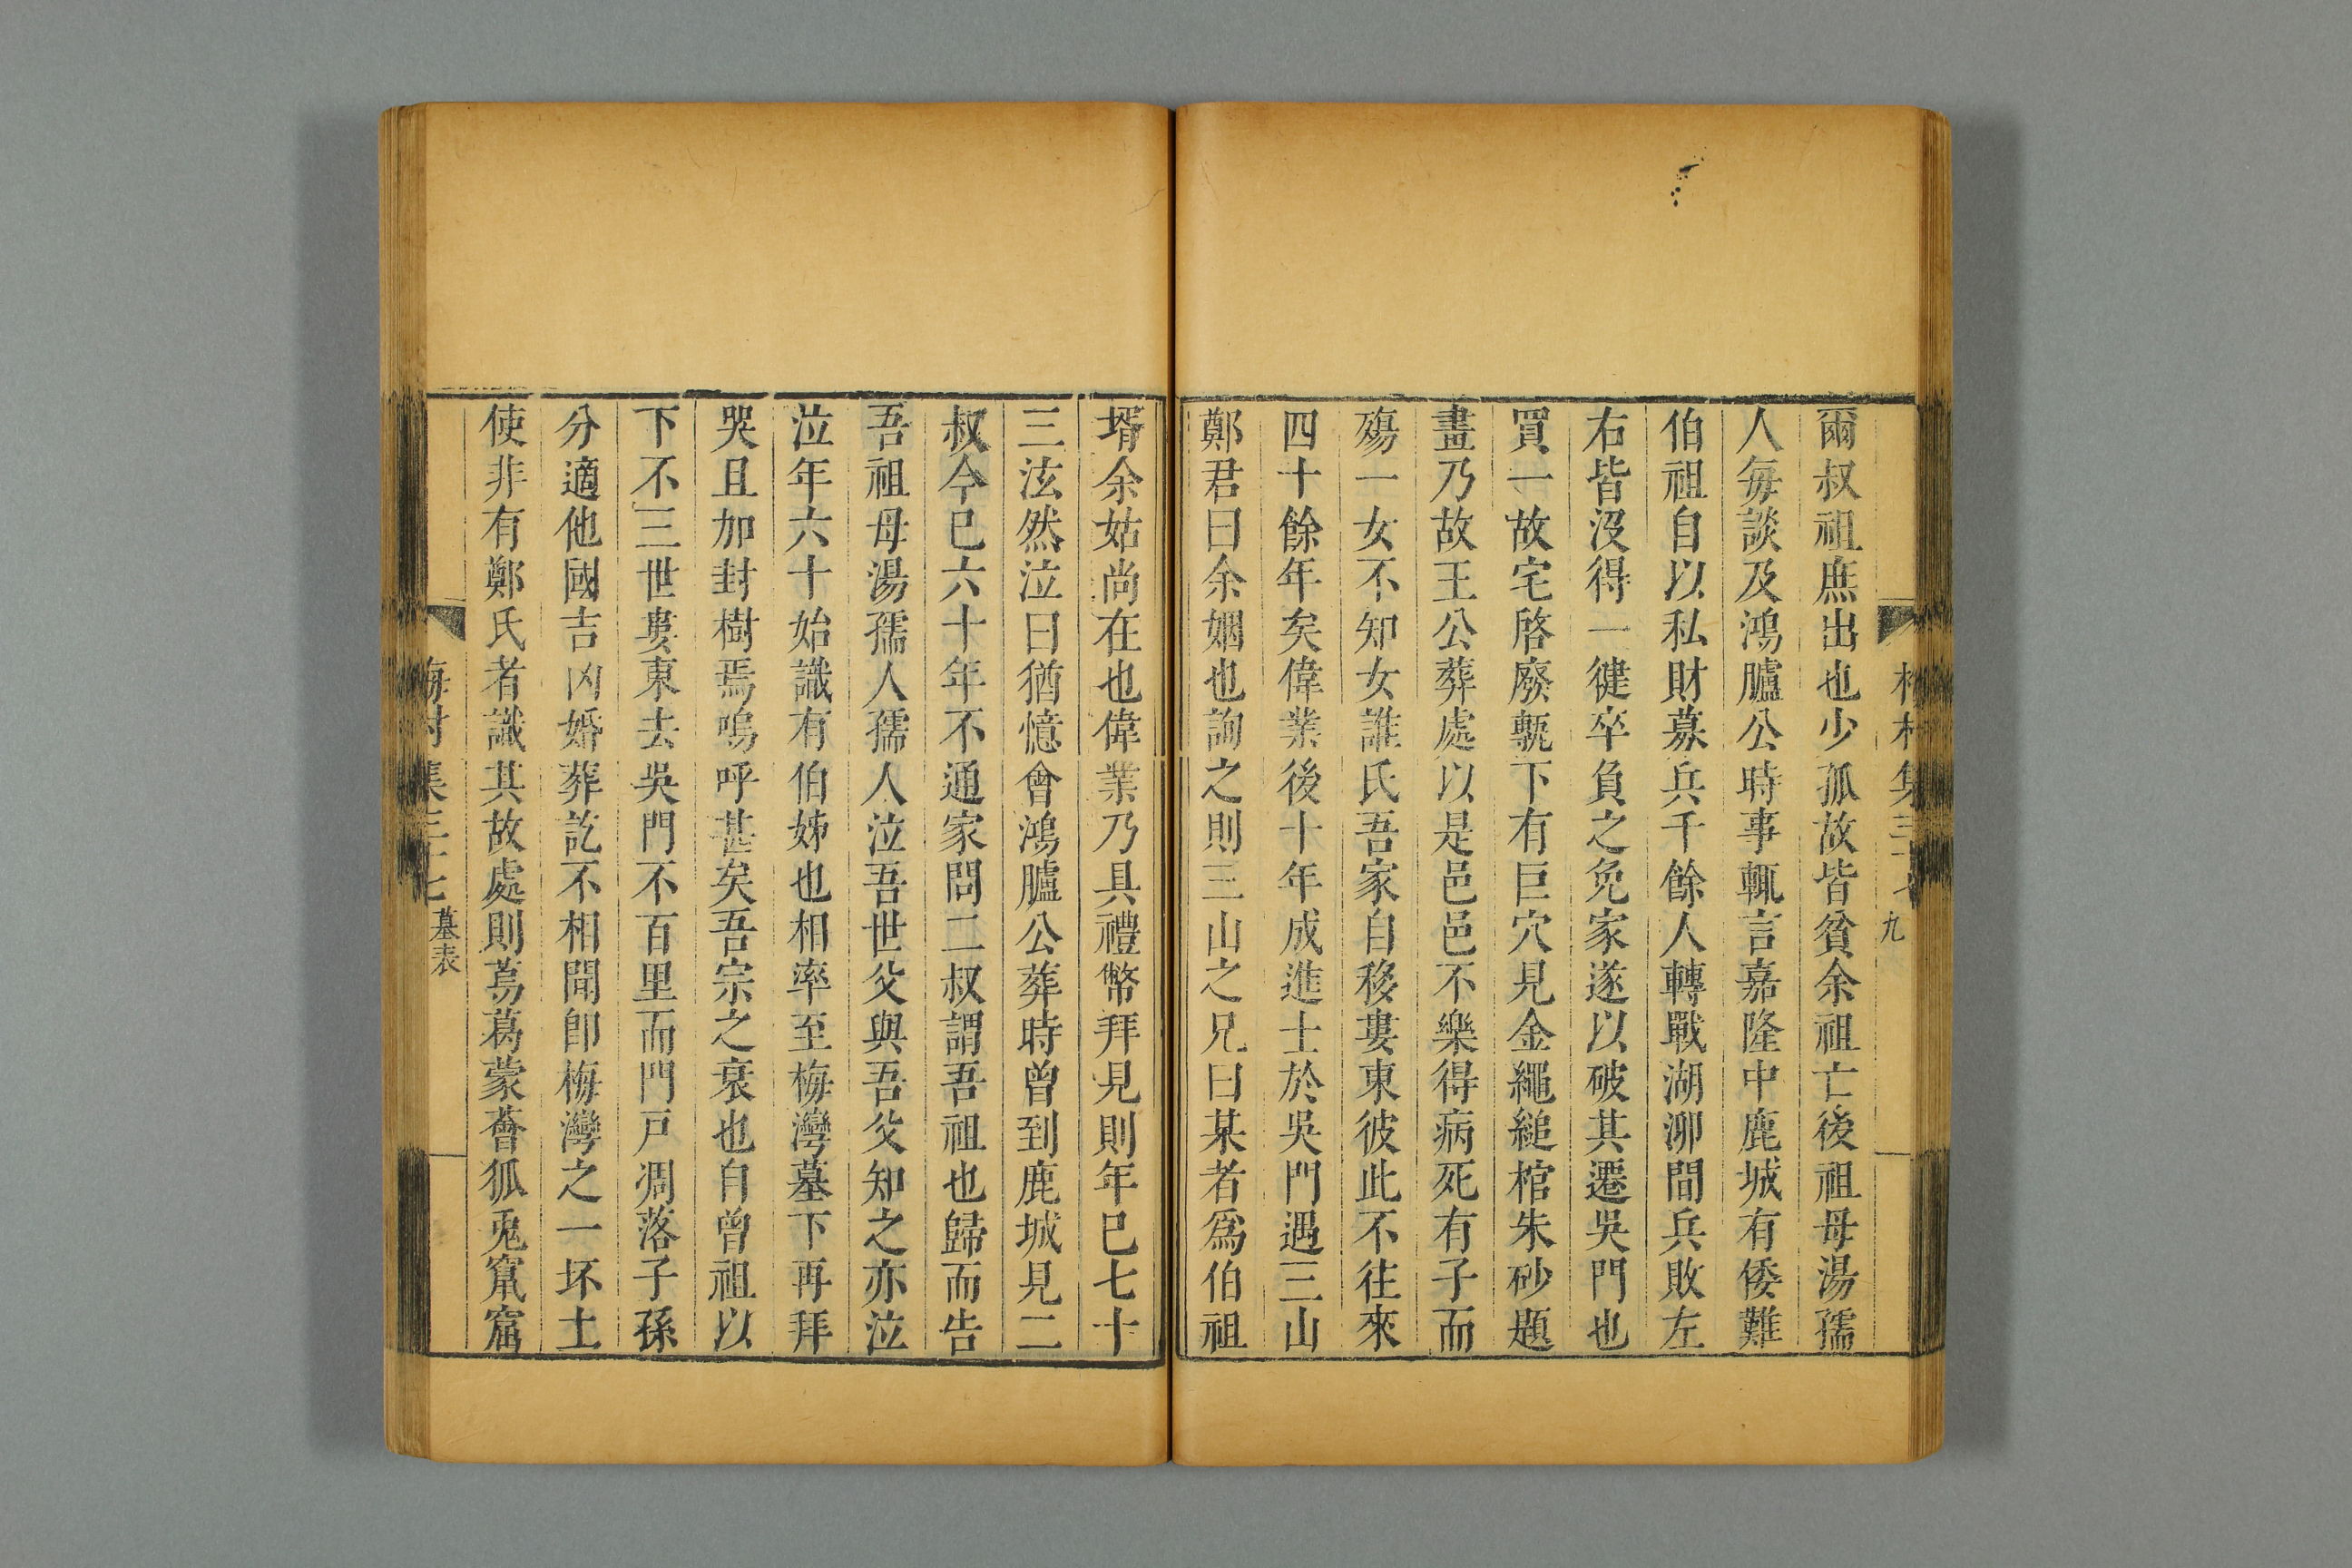 爾叔祖庶出也少孤故皆貧余祖亡後祖母湯孺
人每談及鴻臚公時事輒言嘉隆中鹿城有倭難
伯祖自以私財募兵千餘人轉戰湖泖間兵敗左
右皆沒得一健卒負之免家遂以破其遷吳門也
買一故宅啓廢甎下有巨穴見金繩縋棺朱砂題
畫乃故王公葬處以是邑邑不樂得病死有子而
殤一女不知女誰氏吾家自移婁東彼此不往來
四十餘年矣偉業後十年成進士於吳門遇三山
鄭君曰余姻也詢之則三山之兄曰某者爲伯祖
壻余姑尚在也偉業乃具禮幣拜見則年巳七十
三泫然泣曰猶憶會鴻臚公葬時曾到鹿城見二
叔今巳六十年不通家問二叔謂吾祖也歸而告
吾祖母湯孺人孺人泣吾世父與吾父知之亦泣
泣年六十始識有伯姊也相率至梅灣墓下再拜
哭且加封樹焉嗚呼甚矣吾宗之衰也自曾祖以
下不三世婁東去吳門不百里而門戸凋落子孫
分適他國吉凶婚葬訖不相聞卽梅灣之一坏土
使非有鄭氏者識其故處則荔葛蒙薈狐兎窟窟
梅村集三十七
九
墓表